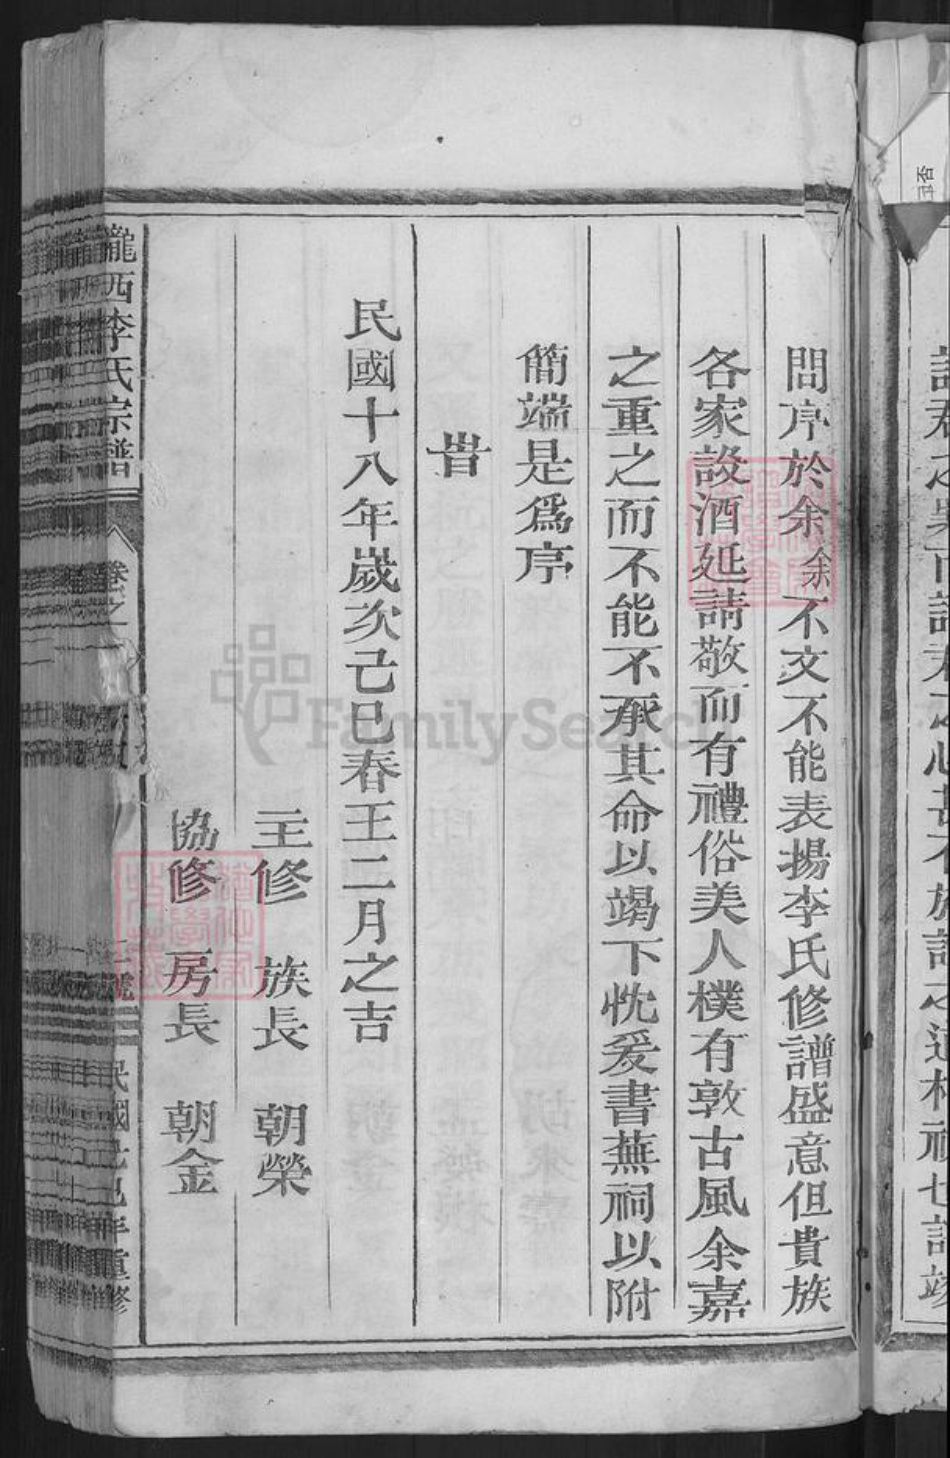 問序於余余不文不能表揚李氏修譜盛意但貴族
各家設酒延請敬而有禮俗美人樸有敦古風余嘉
之重之而不能不承其命以竭下忱爰書蕪祠以附
簡端是爲序
旹
民國十八年歲次己巳春王二月之吉
主修 族長 朝榮
協修 房長 朝金
隴西李氏宗譜 卷之 民國己巳年重修
FamilySearch